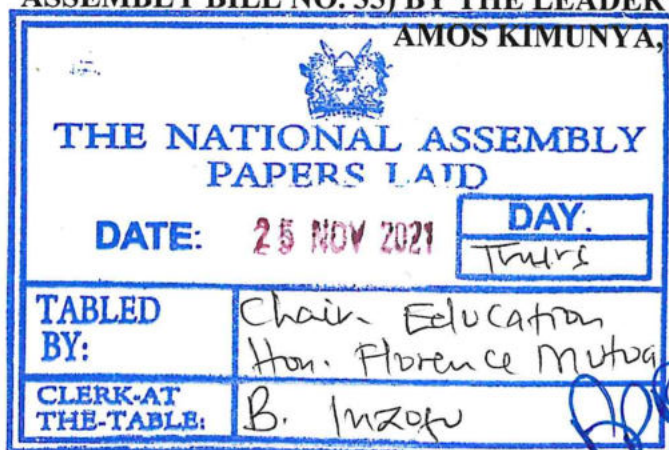 ASSEMBLY BILL NO. BY THE LEADER
AMOS KIMUNYA,
THE NATIONAL ASSEMBLY
PAPERS LAID
DATE: 25 NOV 2021
DAY:
Thurs
TABLED BY:
Chair Education
Hon. Florence Mutua
CLERK-AT THE-TABLE:
B. Inzofu